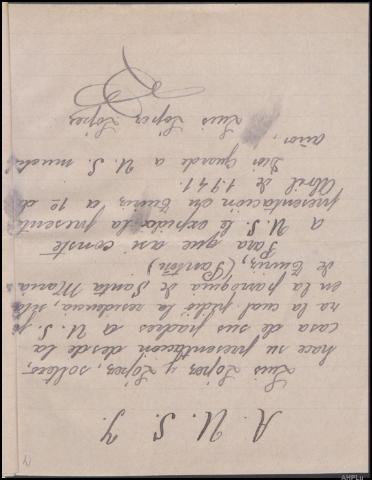 A. U. S. Y.
Luis López y López, soltero,
hace su presentación desde la
casa de sus padres a U. S. pa
ra la cual pidió la residencia, sita
en la parroquia de Santa Maria
de Tuiriz, (Pantón)
Para que asi conste
a U. S. le expido la presente
presentación en Tuiriz, a 12 de
Abril de 1.941.
Dios guarde a U. S. muchos
años,
Luis López López
AHPLu